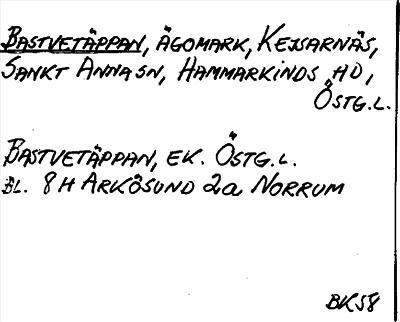 BASTVETÄPPAN, ÄGOMARK, KEJSARNÄS,
SANKT ANNA SN, HAMMARKINDS HD,
ÖSTG.L.
BASTVETÄPPAN, EK. ÖSTG.L.
BL. 8H ARKÖSUND 2a NORRUM
BK58